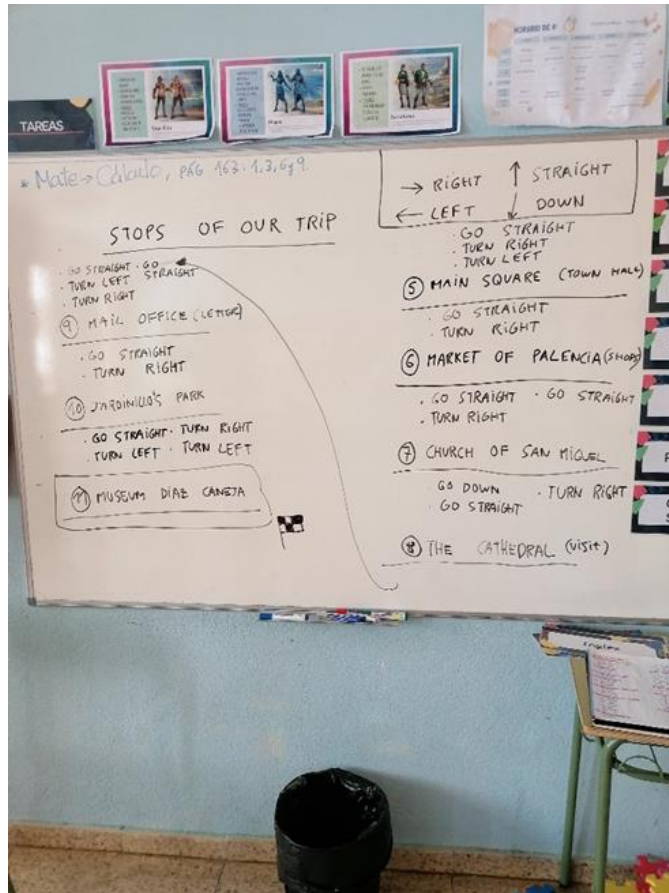 TAREAS
HORARIO DE 4º
* Mate → Cálculo, PÁG 163. 1,3,6 y 9
STOPS OF OUR TRIP
. GO STRAIGHT . GO STRAIGHT
. TURN LEFT
. TURN RIGHT
9 MAIL OFFICE (LETTER)
. GO STRAIGHT
. TURN RIGHT
10 JARDINILLO'S PARK
. GO STRAIGHT . TURN RIGHT
. TURN LEFT . TURN LEFT
11 MUSEUM DIAZ CANEJA
→ RIGHT ↑ STRAIGHT
← LEFT ↓ DOWN
. GO STRAIGHT
. TURN RIGHT
. TURN LEFT
5 MAIN SQUARE (TOWN HALL)
. GO STRAIGHT
. TURN RIGHT
6 MARKET OF PALENCIA (SHOPS)
. GO STRAIGHT . GO STRAIGHT
. TURN RIGHT
7 CHURCH OF SAN MIGUEL
. GO DOWN . TURN RIGHT
. GO STRAIGHT
8 THE CATHEDRAL (VISIT)